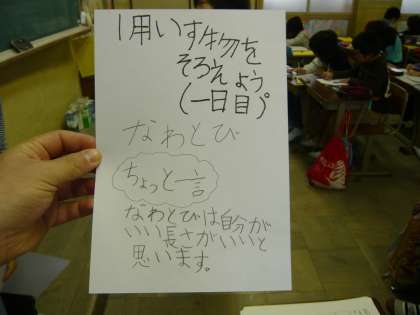 1用いす物を
そろえよう。
(一日目)
なわとび
ちょっと一言
なわとびは自分が
いい長さがいいと
思います。